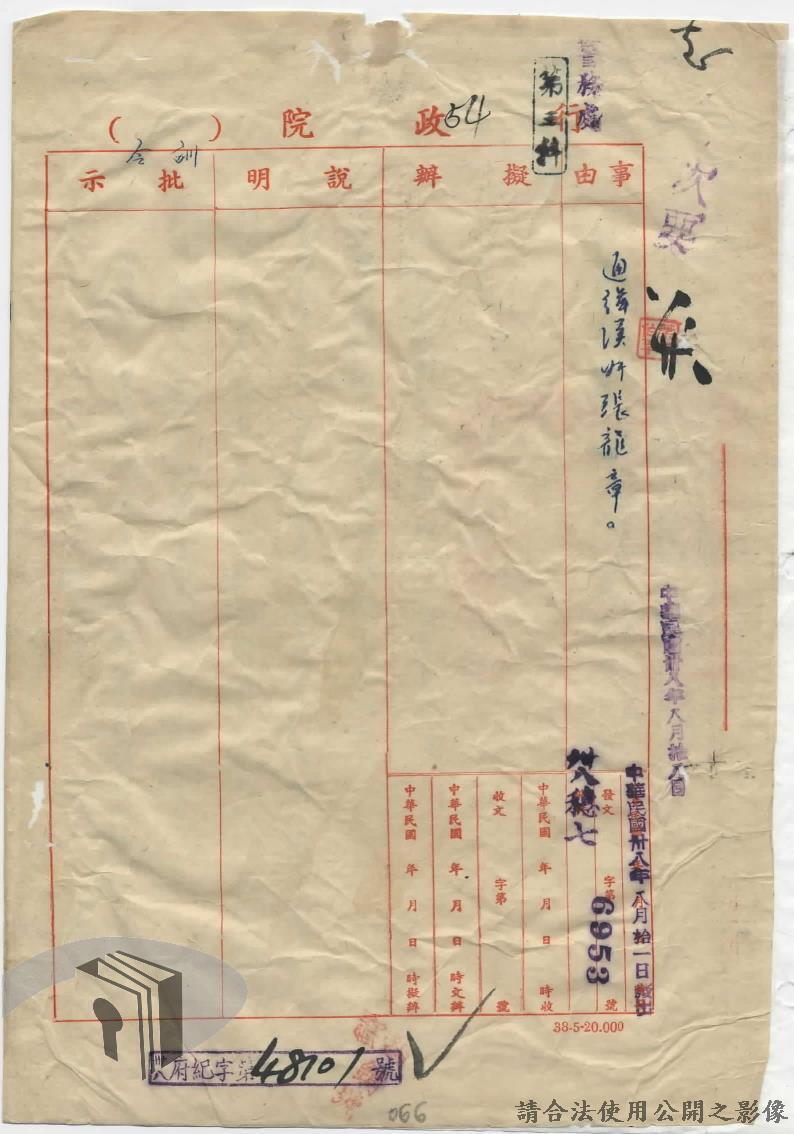 警務處
第三科
54
行政院(訓令)
事由
擬辦
說明
批示
次要
通緝漢奸張龍章。
中華民國卅八年八月拾八日
中華民國卅八年八月拾一日發出
發文 字第 號
卅八穗七
6953
中華民國 年 月 日 時收
收文 字第 號
中華民國 年 月 日 時交辦
中華民國 年 月 日 時擬辦
38-5-20.000
府紀字第48101號
066
請合法使用公開之影像